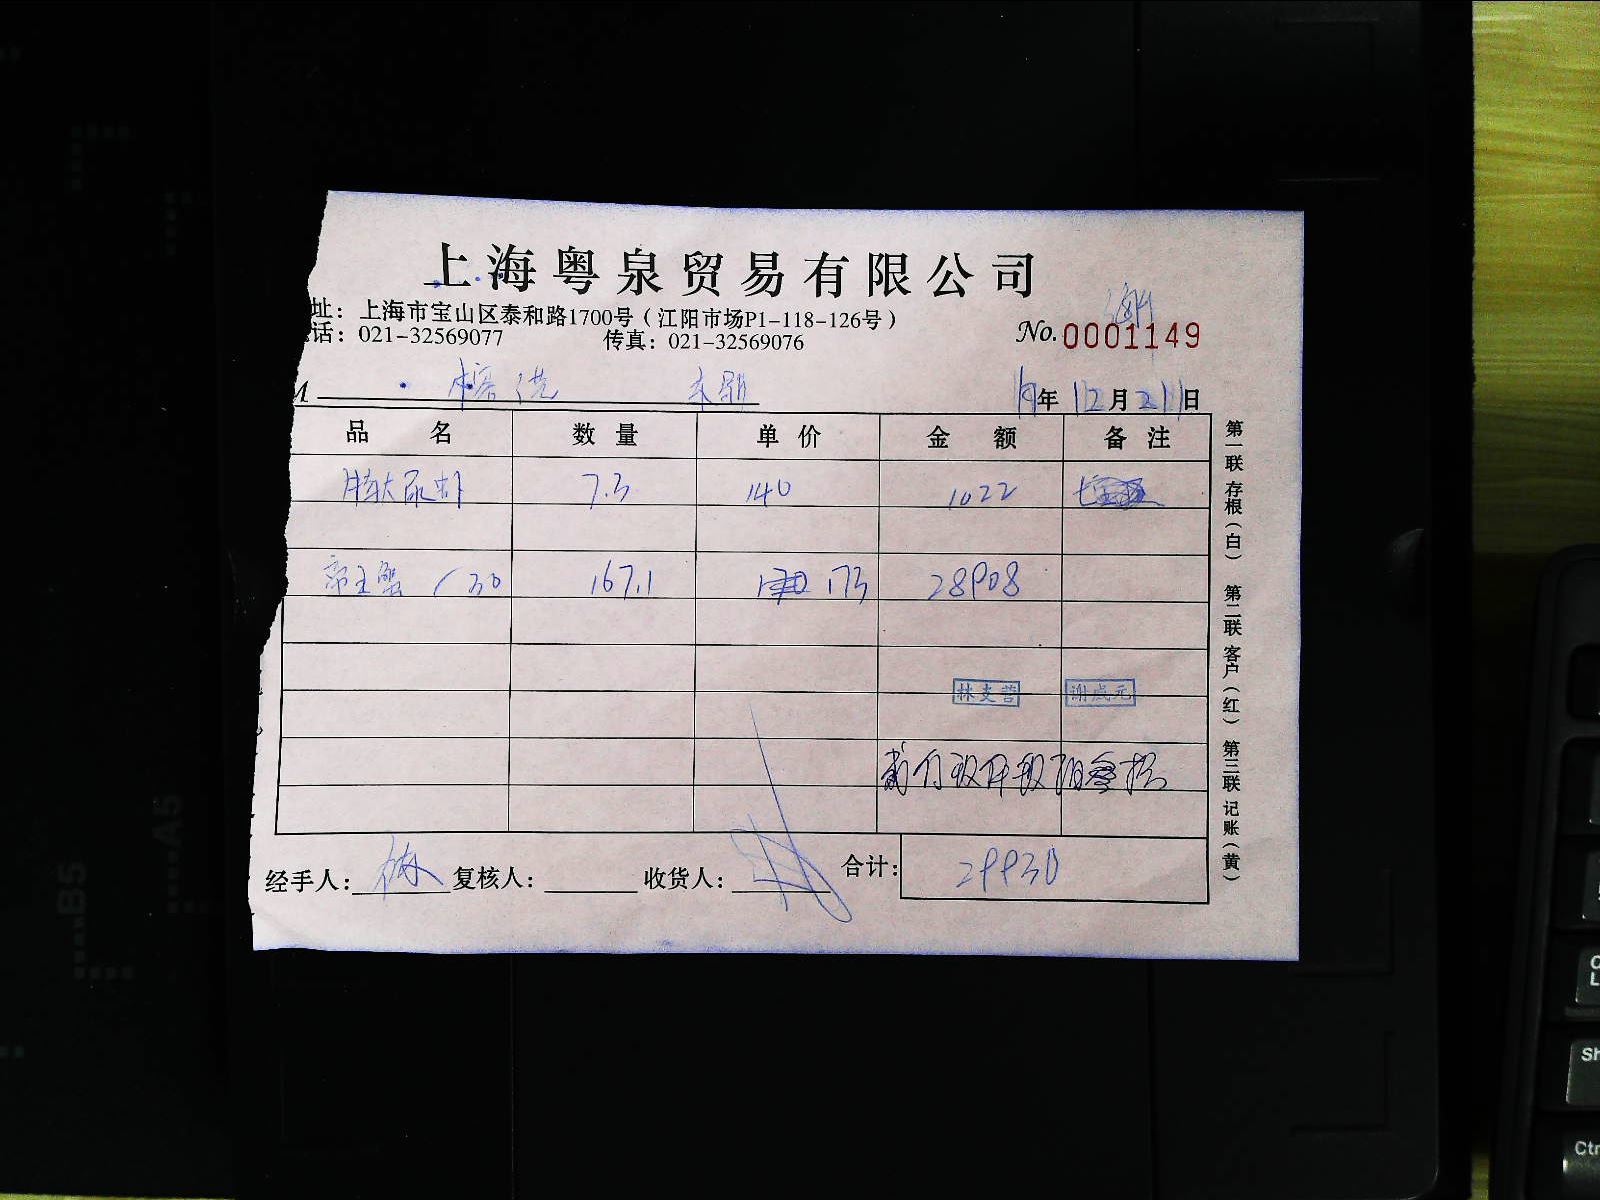 上海粤泉贸易有限公司
址：上海市宝山区泰和路1700号（江阳市场P1-118-126号）
话：021-32569077 传真：021-32569076 No.0001149
M
年12月21日
品名 数量 单价 金额 备注
尿虾 7.3 140 1022
帝王蟹 /30 167.1 173 28908
林支营 谢成元
经手人： 复核人： 收货人： 合计：29930
第一联存根（白） 第二联客户（红） 第三联记账（黄）
B5
A5
Sh
Ctr